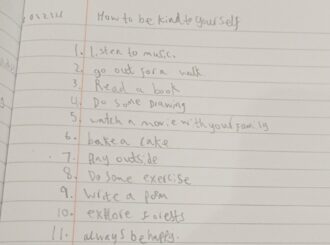 How to be kind to yourself
1. Listen to music.
2. go out for a walk
3. Read a book
4. Do some Drawing
5. watch a movie with your family
6. bake a cake
7. Play outside
8. Do some exercise
9. Write a Poem
10. explore forests
11. always be happy.